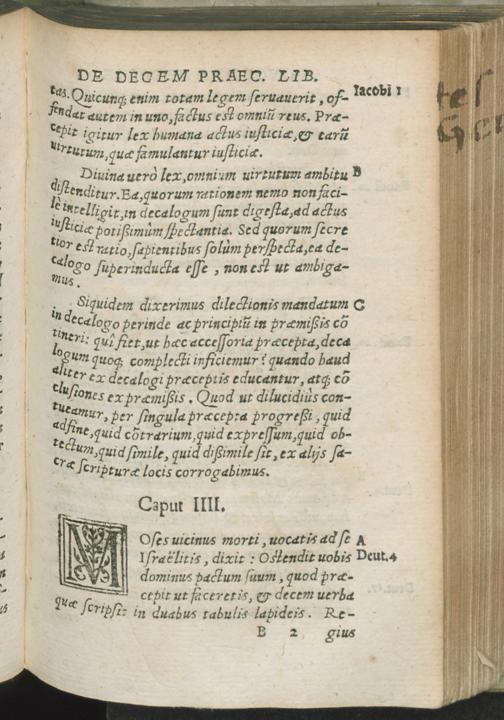 DE DECEM PRAEC. LIB.
tas. Quicunq; enim totam legem seruauerit, of- Iacobi 1
fendat autem in uno, factus est omniũ reus. Præ-
cepit igitur lex humana actus iusticiæ, & earũ
uirtutum, quæ famulantur iusticiæ.
Diuina uerò lex, omnium uirtutum ambitu B
distenditur. Ea, quorum rationem nemo non faci-
lè intelligit, in decalogum sunt digesta, ad actus
iusticiæ potißimùm spectantia. Sed quorum secre
tior est ratio, sapientibus solùm perspecta, ea de-
calogo superinducta esse, non est ut ambiga-
mus.
Siquidem dixerimus dilectionis mandatum C
in decalogo perinde ac principiũ in præmißis cõ
tineri: quî fiet, ut hæc accessoria præcepta, deca
logum quoq; complecti inficiemur? quando haud
aliter ex decalogi præceptis educantur, atq; cõ
clusiones ex præmißis. Quod ut dilucidiùs con-
tueamur, per singula præcepta progreßi, quid
adfine, quid cõtrarium, quid expressum, quid ob-
tectum, quid simile, quid dißimile sit, ex alijs sa-
cræ scripturæ locis corrogabimus.
Caput IIII.
MOses uicinus morti, uocatis ad se A
Israëlitis, dixit: Ostendit uobis Deut.4
dominus pactum suum, quod præ-
cepit ut faceretis, & decem uerba
quæ scripsit in duabus tabulis lapideis. Re-
B 2 gius